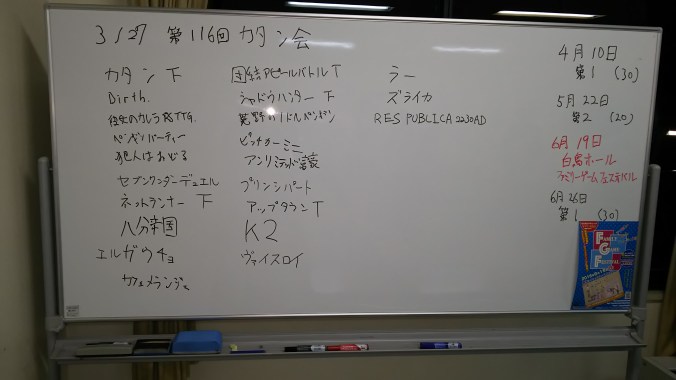 3/27 第116回 カタン会
カタン 下
Birth.
ペンギンパーティー
犯人はおどる
セブンワンダーデュエル
ネットランナー 下
八分帝国
エルガウチョ
カフェメランジェ
団結アピールバトル T
シャドウハンター 下
ピッチカーミニ
アンリミテッド
プリンシパート
アップタウン T
K2
ヴァイスロイ
ラー
ズライカ
RES PUBLICA 2230AD
4月10日
第1 (30)
5月22日
第2 (20)
6月19日
白鳥ホール
ファミリーゲームフェスティバル
6月26日
第1 (30)
FAMILY
GAME
FESTIVAL